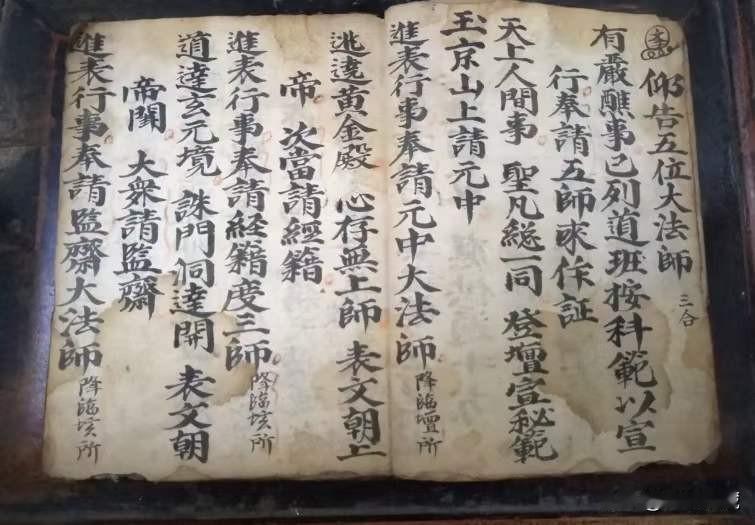 仰告五位大法師 三合
有嚴醮事已列道班按科範以宣
行奉請五師來作証
天上人間事 聖凡総一同 登壇宣秘範
玉京山上請元中
進表行事奉請元中大法師 降臨壇所
逃遶黄金殿 心存無上師 表文朝上
帝 次當請經籍
進表行事奉請経籍度三師 降臨垓所
道達玄元境 誅門洞達開 表文朝
帝闕 大衆請監齋
進表行事奉請監齋大法師 降臨垓所